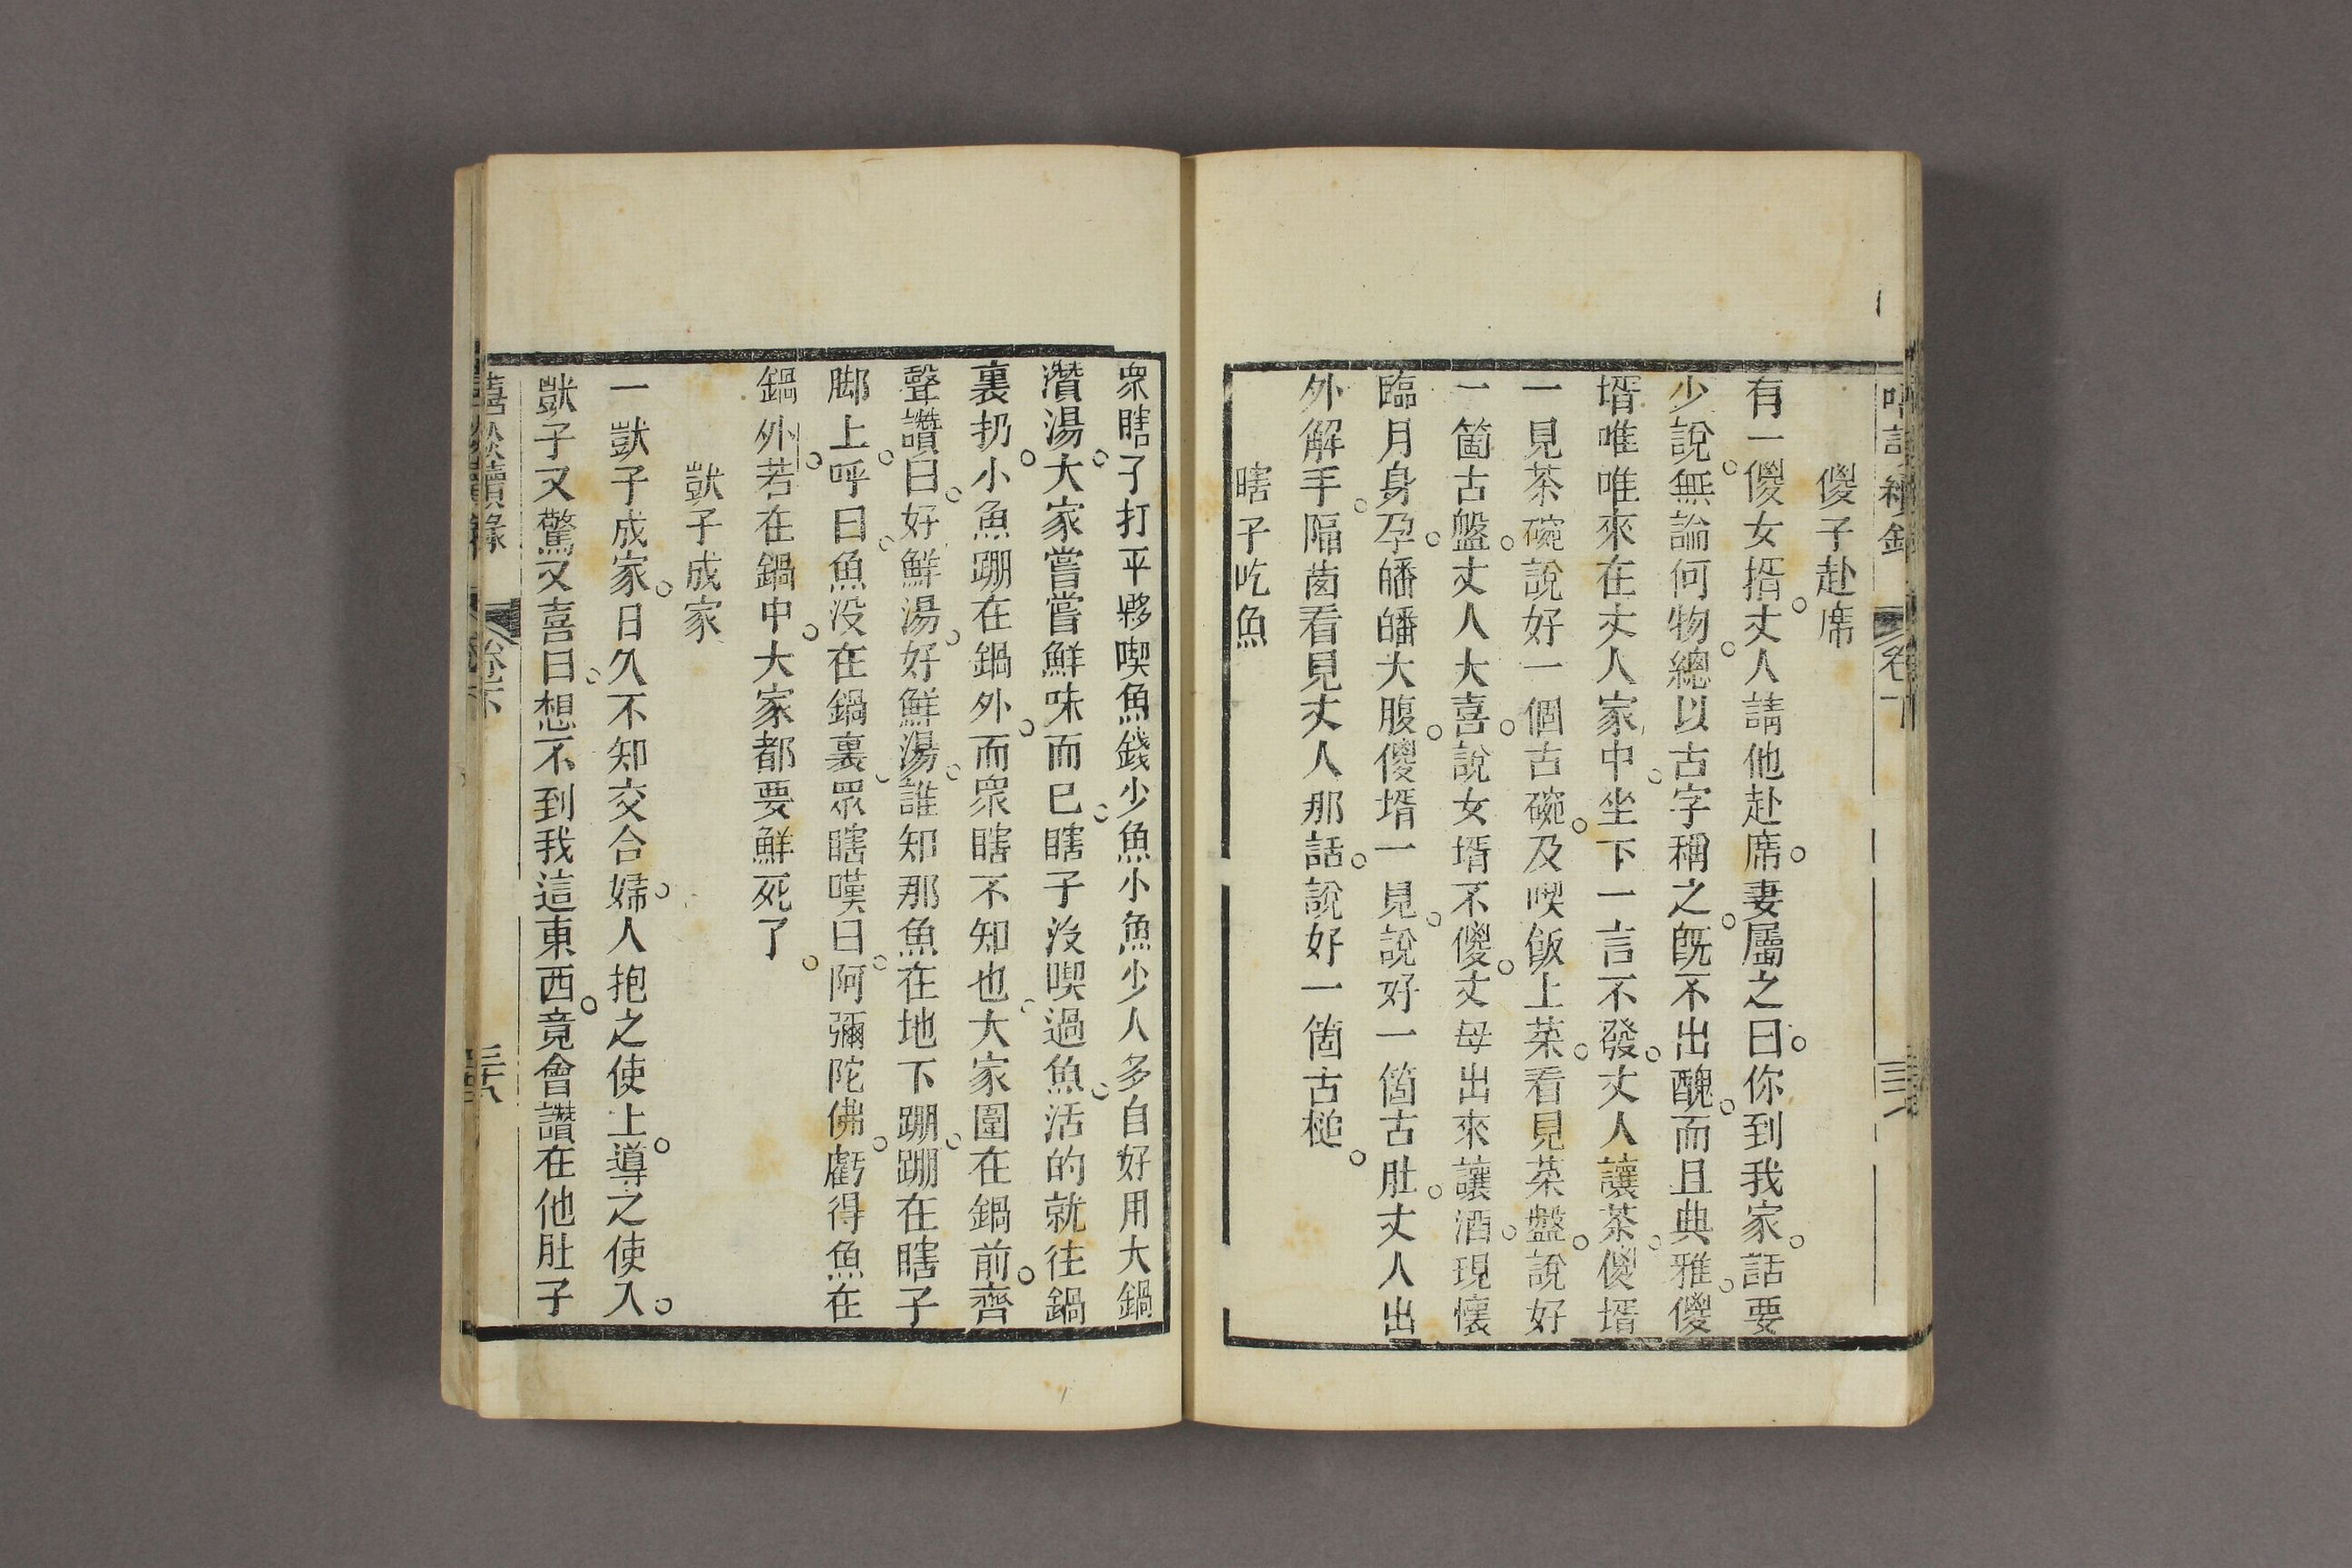 傻子赴席
有一傻女壻。丈人請他赴席。妻屬之曰。你到我家。話要
少說。無論何物。總以古字稱之。旣不出醜。而且典雅。傻
壻唯唯來在丈人家中。坐下一言不發。丈人讓茶。傻壻
一見茶碗說好一個古碗。及喫飯上菜。看見菜盤。說好
一箇古盤。丈人大喜。說女壻不傻。丈母出來讓酒。現懷
臨月身孕。皤皤大腹。傻壻一見。說好一箇古肚。丈人出
外解手。隔窗看見丈人那話。說好一箇古槌。
瞎子吃魚
衆瞎子打平夥喫魚錢少魚小魚少人多自好用大鍋
灒湯。大家嘗嘗鮮味而已。瞎子没喫過魚。活的就往鍋
裏扔。小魚蹦在鍋外。而衆瞎不知也。大家圍在鍋前。齊
聲讚曰。好鮮湯。好鮮湯。誰知那魚在地下蹦。蹦在瞎子
脚上。呼曰。魚没在鍋裏。眾瞎嘆曰。阿彌陀佛。虧得魚在
鍋外。若在鍋中。大家都要鮮死了。
獃子成家
一獃子成家。日久不知交合。婦人抱之使上。導之使入。
獃子又驚又喜曰。想不到我這東西。竟會讚在他肚子
卷下